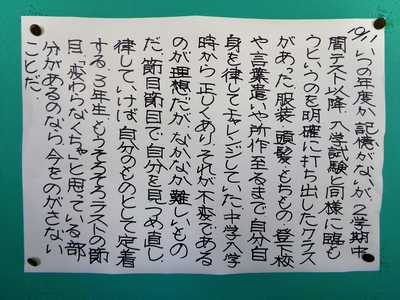 10/11 いつの年度か記憶がないが、2学期中
間テスト以降、入学試験と同様に臨も
うというのを明確に打ち出したクラス
があった。服装、頭髪、もちもの、登下校
や言葉遣いや所作、至るまで自分自
身を律してチャレンジしていた。中学入学
時から正しくあり、それが不変である
のが理想だが、なかなか難しいもの
だ。節目節目で自分を見つめ直し、
律していけば、自分のものとして定着
する。3年生、もうそろそろラストの節
目、「変わらなくちゃ」と思っている部
分があるのなら、今をのがさない
ことだ。